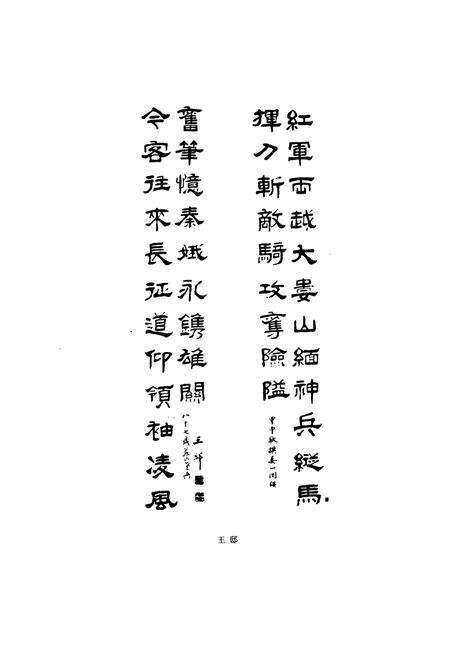 紅軍両越大婁山緬神兵縱馬
揮刀斬敵騎攻奪險隘
甲申秋撰婁
奮筆憶秦娥永鐫雄關
今客往來長征道仰領袖凌風
八十七歲
王邸
王 邸